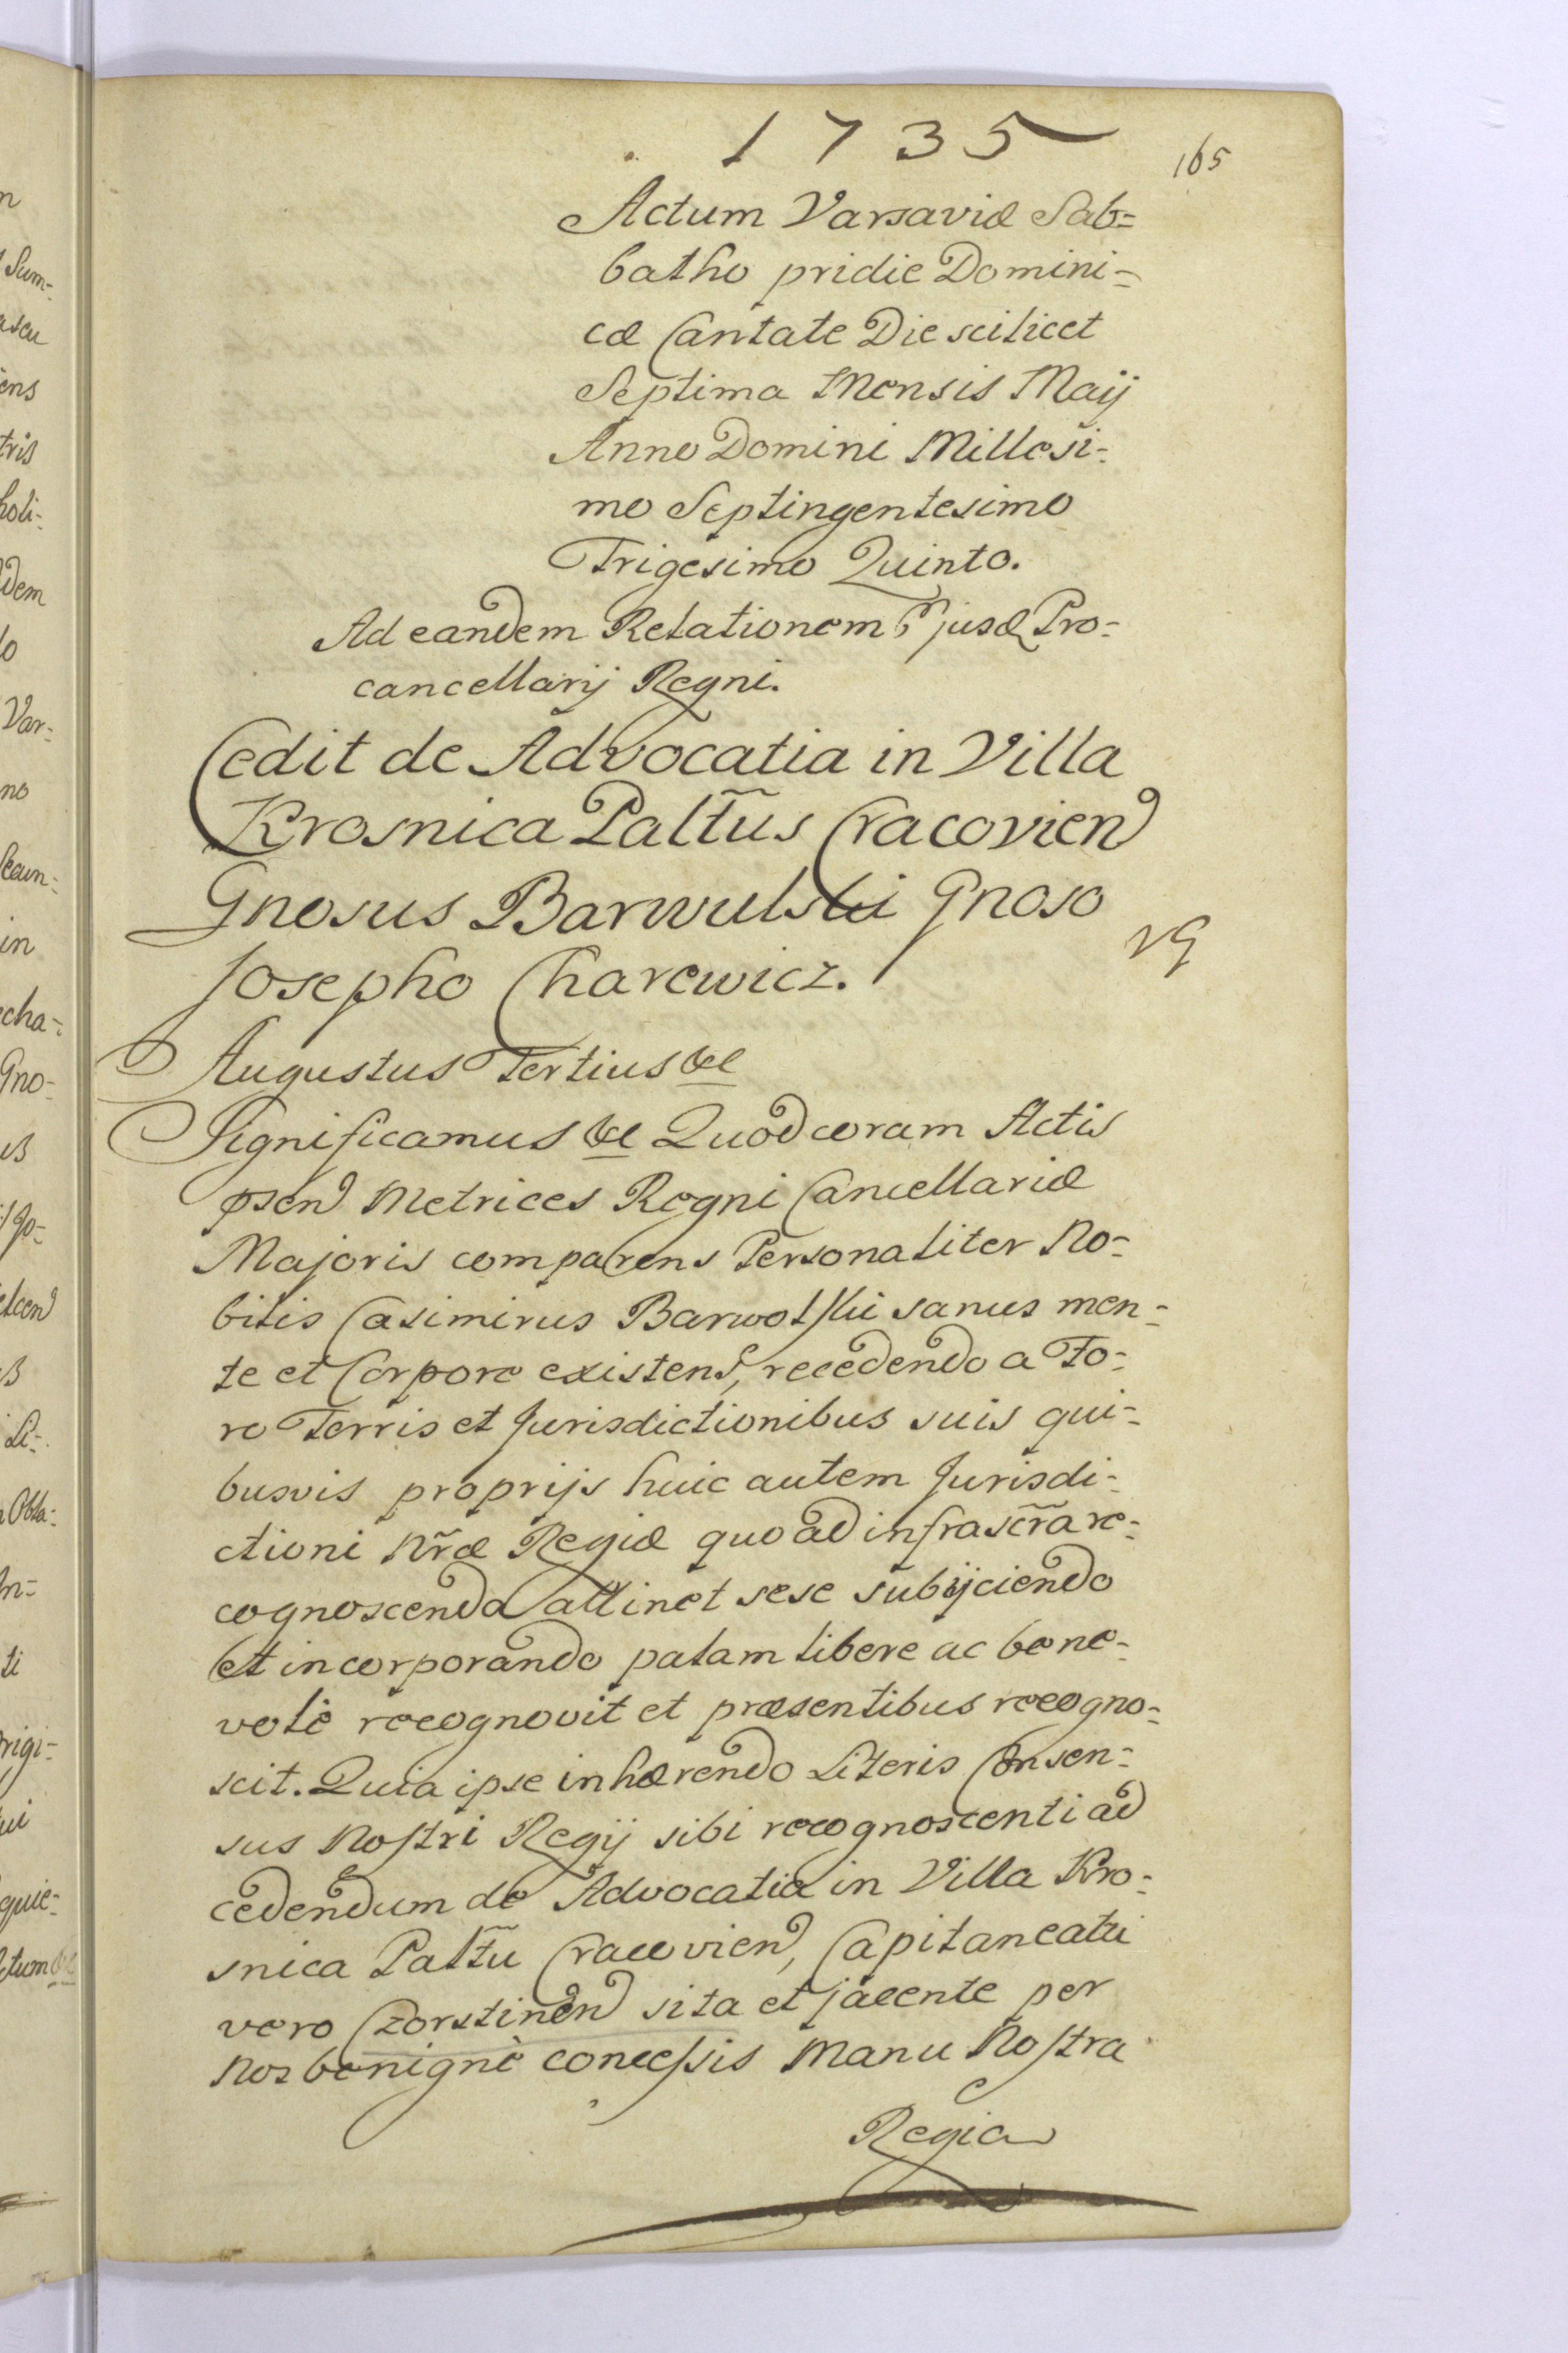 1735
165
Actum Varsaviæ Sab=
batho pridie Domini=
cæ Cantate Die scilicet
Septima Mensis Maij
Anno Domini Millesi=
mo Septingentesimo
Trigesimo Quinto.
Ad eandem Relationem Pro=
cancellarij Regni.
Cedit de Advocatia in Villa
Krosnica Palt̃us Cracovien
Gnosus Barwulski Gnoso
Josepho Charewicz.
Augustus Tertius &c
Significamus &c Quod coram Actis
psen Metrices Regni Cancellariæ
Majoris comparens Personaliter No=
bilis Casimirus Barwolski sanus men=
te et Corpore existens, recedendo a Fo=
ro Terris et Jurisdictionibus suis qui=
busvis proprijs huic autem Jurisdi=
ctioni nr̃æ Regiæ quo ad infrascr̃a re=
cognoscenda attinet sese subijciendo
et incorporando palam libere ac bene=
vole recognovit et præsentibus recogno=
scit. Quia ipse inhærendo Literis Consen=
sus Nostri Regij sibi recognoscenti ad
cedendum de Advocatia in Villa Kro=
snica Palt̃u Cracovien, Capitaneatu
vero Czorstinen sita et jacente per
Nos benignè concessis Manu Nostra
Regia